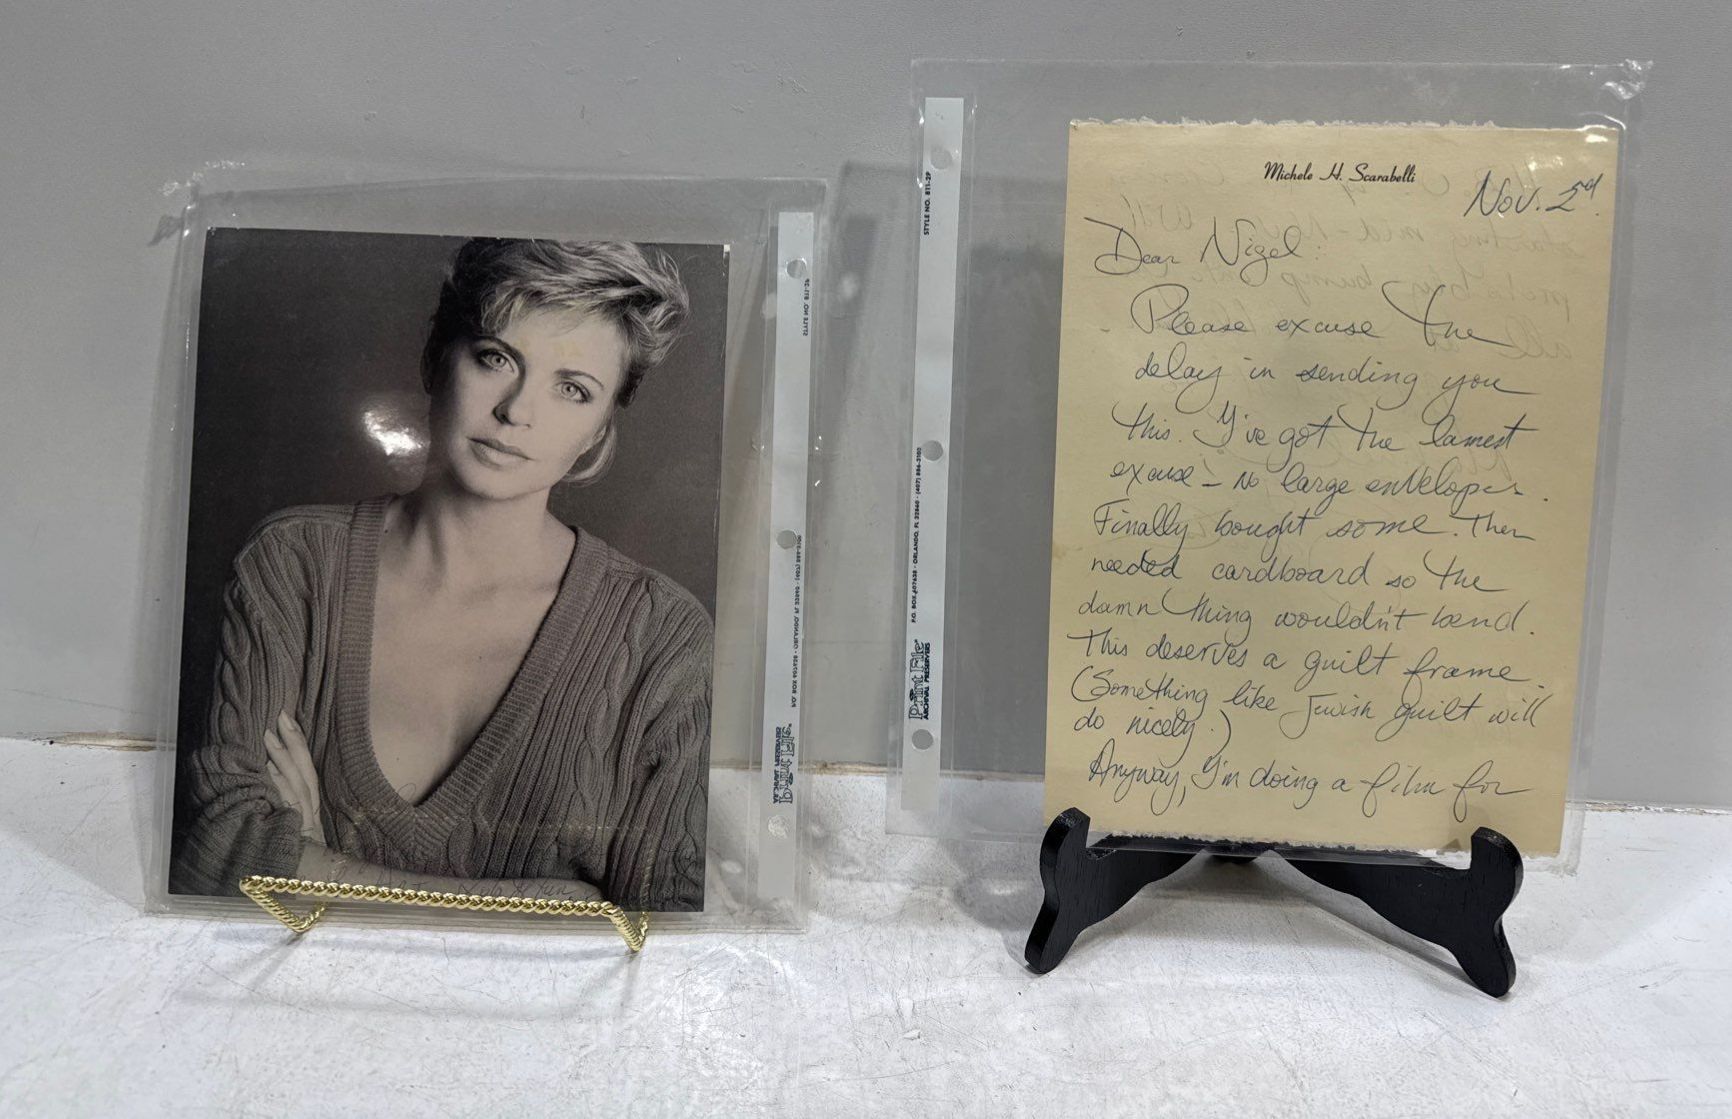 Michele H. Scarabelli
Nov. 2nd.
Dear Nigel:
Please excuse the
delay in sending you
this. I've got the lamest
excuse - No large envelopes.
Finally bought some. Then
needed cardboard so the
damn thing wouldn't bend.
This deserves a guilt frame.
(Something like Jewish guilt will
do nicely.)
Anyway, I'm doing a film for
STYLE NO. 811-2P
P.O. BOX 607638 • ORLANDO, FL 32860 • (407) 886-3100
Print File®
ARCHIVAL PRESERVERS
STYLE NO. 811-2P
P.O. BOX 607638 • ORLANDO, FL 32860 • (407) 886-3100
Print File®
ARCHIVAL PRESERVERS